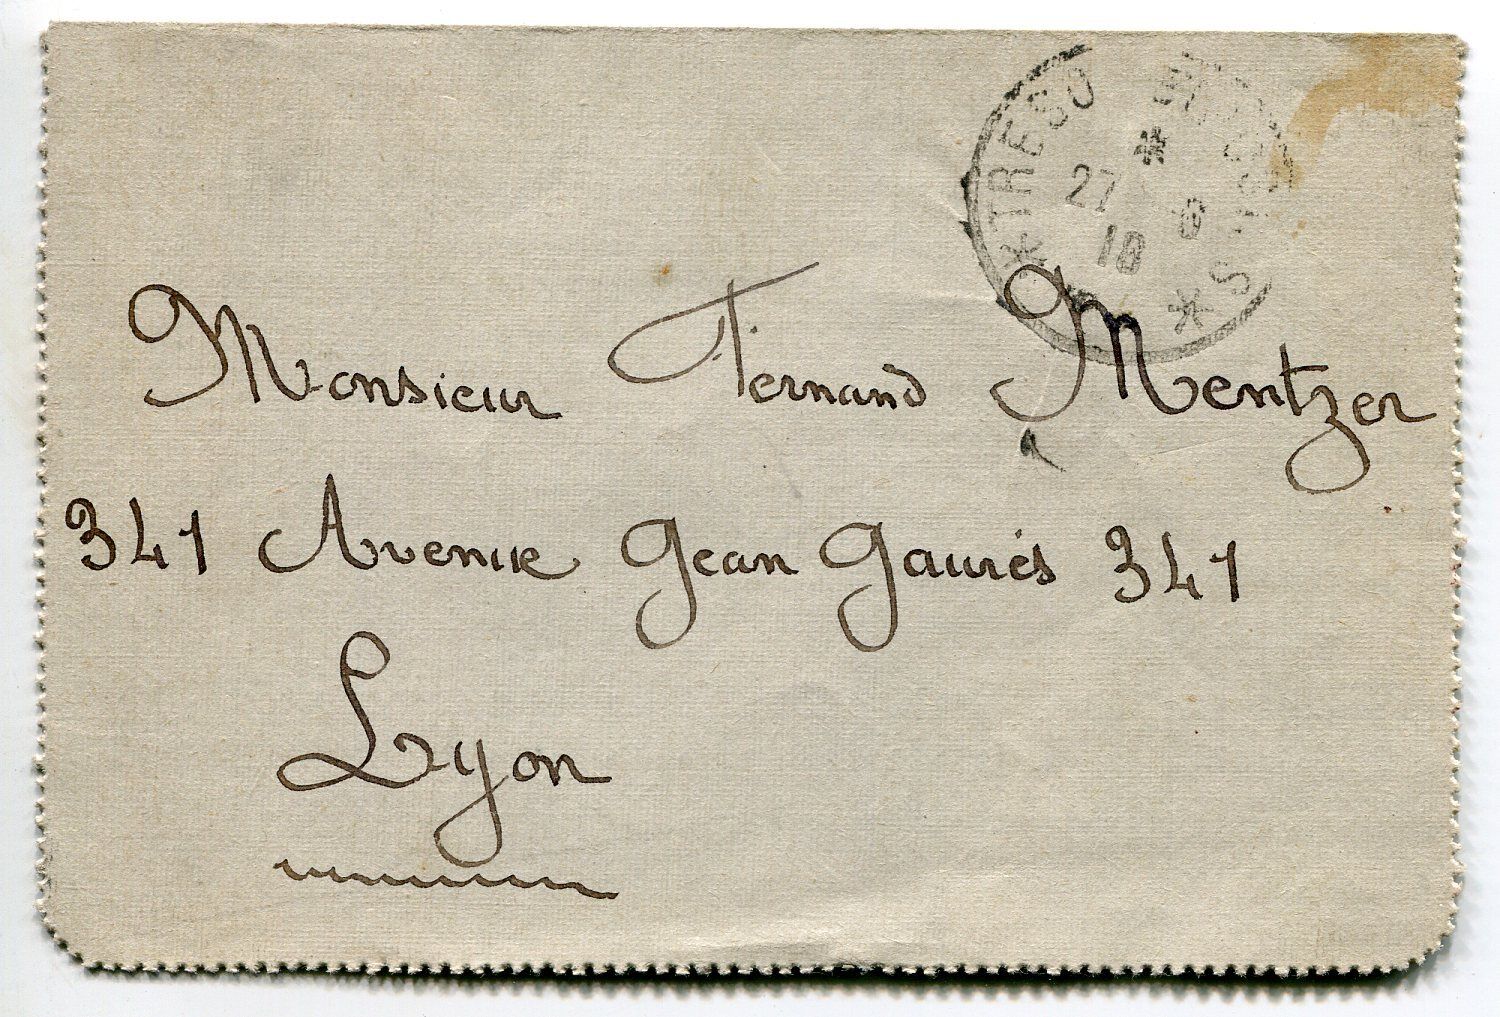 *TRESOR ET POSTES*
*
27 8
18
Monsieur Fernand Mentzer
341 Avenue Jean Jaurés 341
Lyon